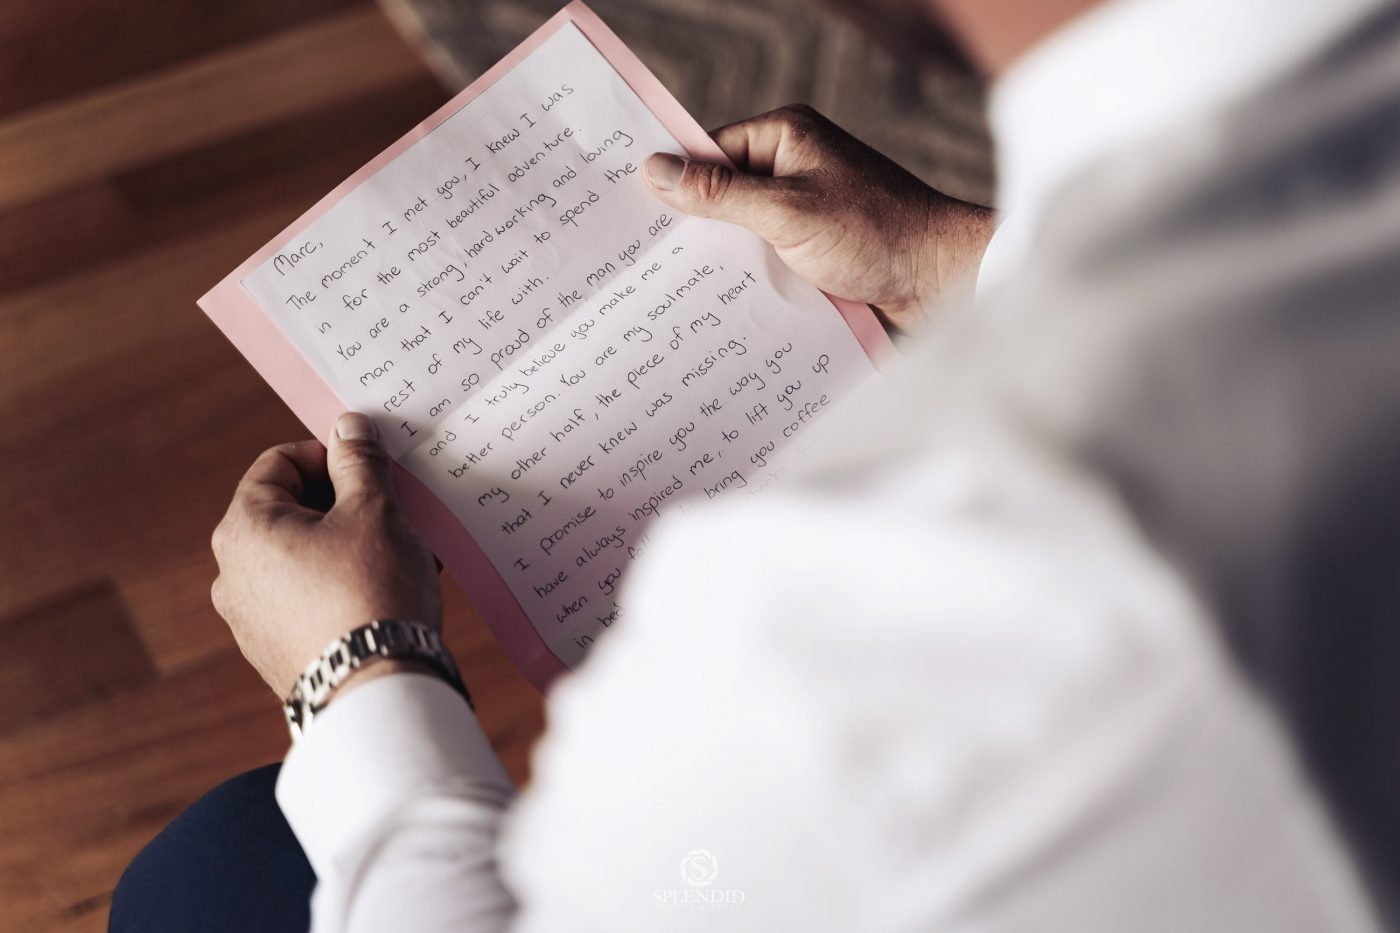 Marc,
The moment I met you, I knew I was
in for the most beautiful adventure.
You are a strong, hardworking and loving
man that I can't wait to spend the
rest of my life with.
I am so proud of the man you are
and I truly believe you make me a
better person. You are my soulmate,
my other half, the piece of my heart
that I never knew was missing.
I promise to inspire you the way you
have always inspired me, to lift you up
when you bring you coffee
in
SPLENDID